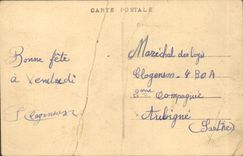 CARTE POSTALE
Bonne fête
à Vendredi
Clogenson
Maréchal des logis
Clogenson 4 B O A
2ème Compagnie
Aubigné
(Sarthe)